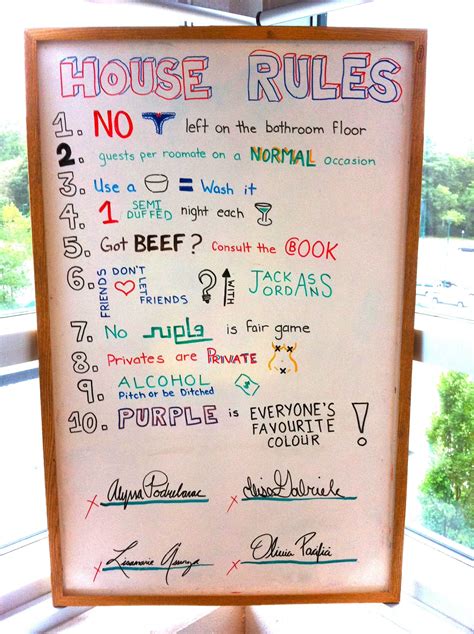 HOUSE RULES
1. NO left on the bathroom floor
2. guests per roomate on a NORMAL occasion
3. Use a = Wash it
4. 1 SEMI DUFFED night each
5. Got BEEF? Consult the BOOK
6. FRIENDS DON'T LET FRIENDS ? WITH JACK ASS JORDANS
7. No is fair game
8. Privates are PRIVATE
9. ALCOHOL
Pitch or be Ditched
10. PURPLE is EVERYONE'S FAVOURITE COLOUR!
x Alyssa x Gabriele
x Lisamarie x Olivia